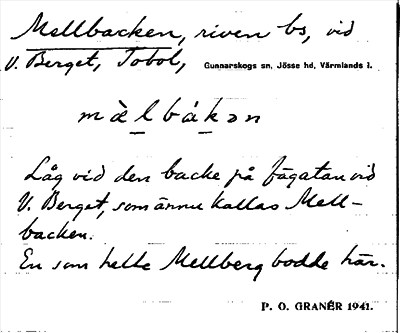 Mellbacken, riven bs, vid
V. Berget, Tobol, Gunnarskogs sn, Jösse hd, Värmlands l.
mὲlbákən
Låg vid den backe på fägatan vid
V. Berget, som ännu kallas Mell-
backen.
En som hette Mellberg bodde här.
P. O. GRANÉR 1941.